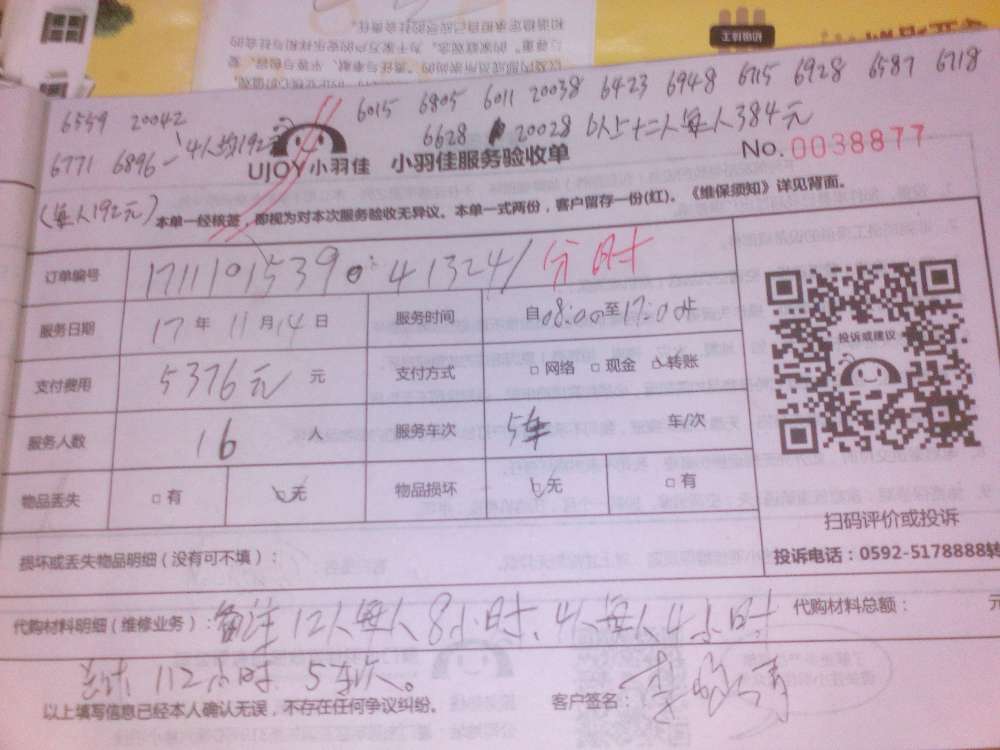 6559 20042 6015 6805 6011 20038 6423 6948 6715 6928 6587 6718
6771 6896 一4人均192元 6628 20028 以上十二人每人384元
(每人192元)
UJOY小羽佳 小羽佳服务验收单 No.0038877
本单一经核签，即视为对本次服务验收无异议。本单一式两份，客户留存一份(红)。《维保须知》详见背面。
订单编号 1711101539 413241 分时
服务日期 17年11月14日 服务时间 自08:00至17:00止
支付费用 5376元 元 支付方式 □网络 □现金 □转账
服务人数 16 人 服务车次 5车 车/次
物品丢失 □有 □无 物品损坏 □无 □有
损坏或丢失物品明细（没有可不填）：
投诉或建议
扫码评价或投诉
投诉电话：0592-5178888转
代购材料明细（维修业务）：备注12人每人8小时,4人每人4小时 代购材料总额： 元
总计112小时 5车次。
以上填写信息已经本人确认无误，不存在任何争议纠纷。 客户签名：